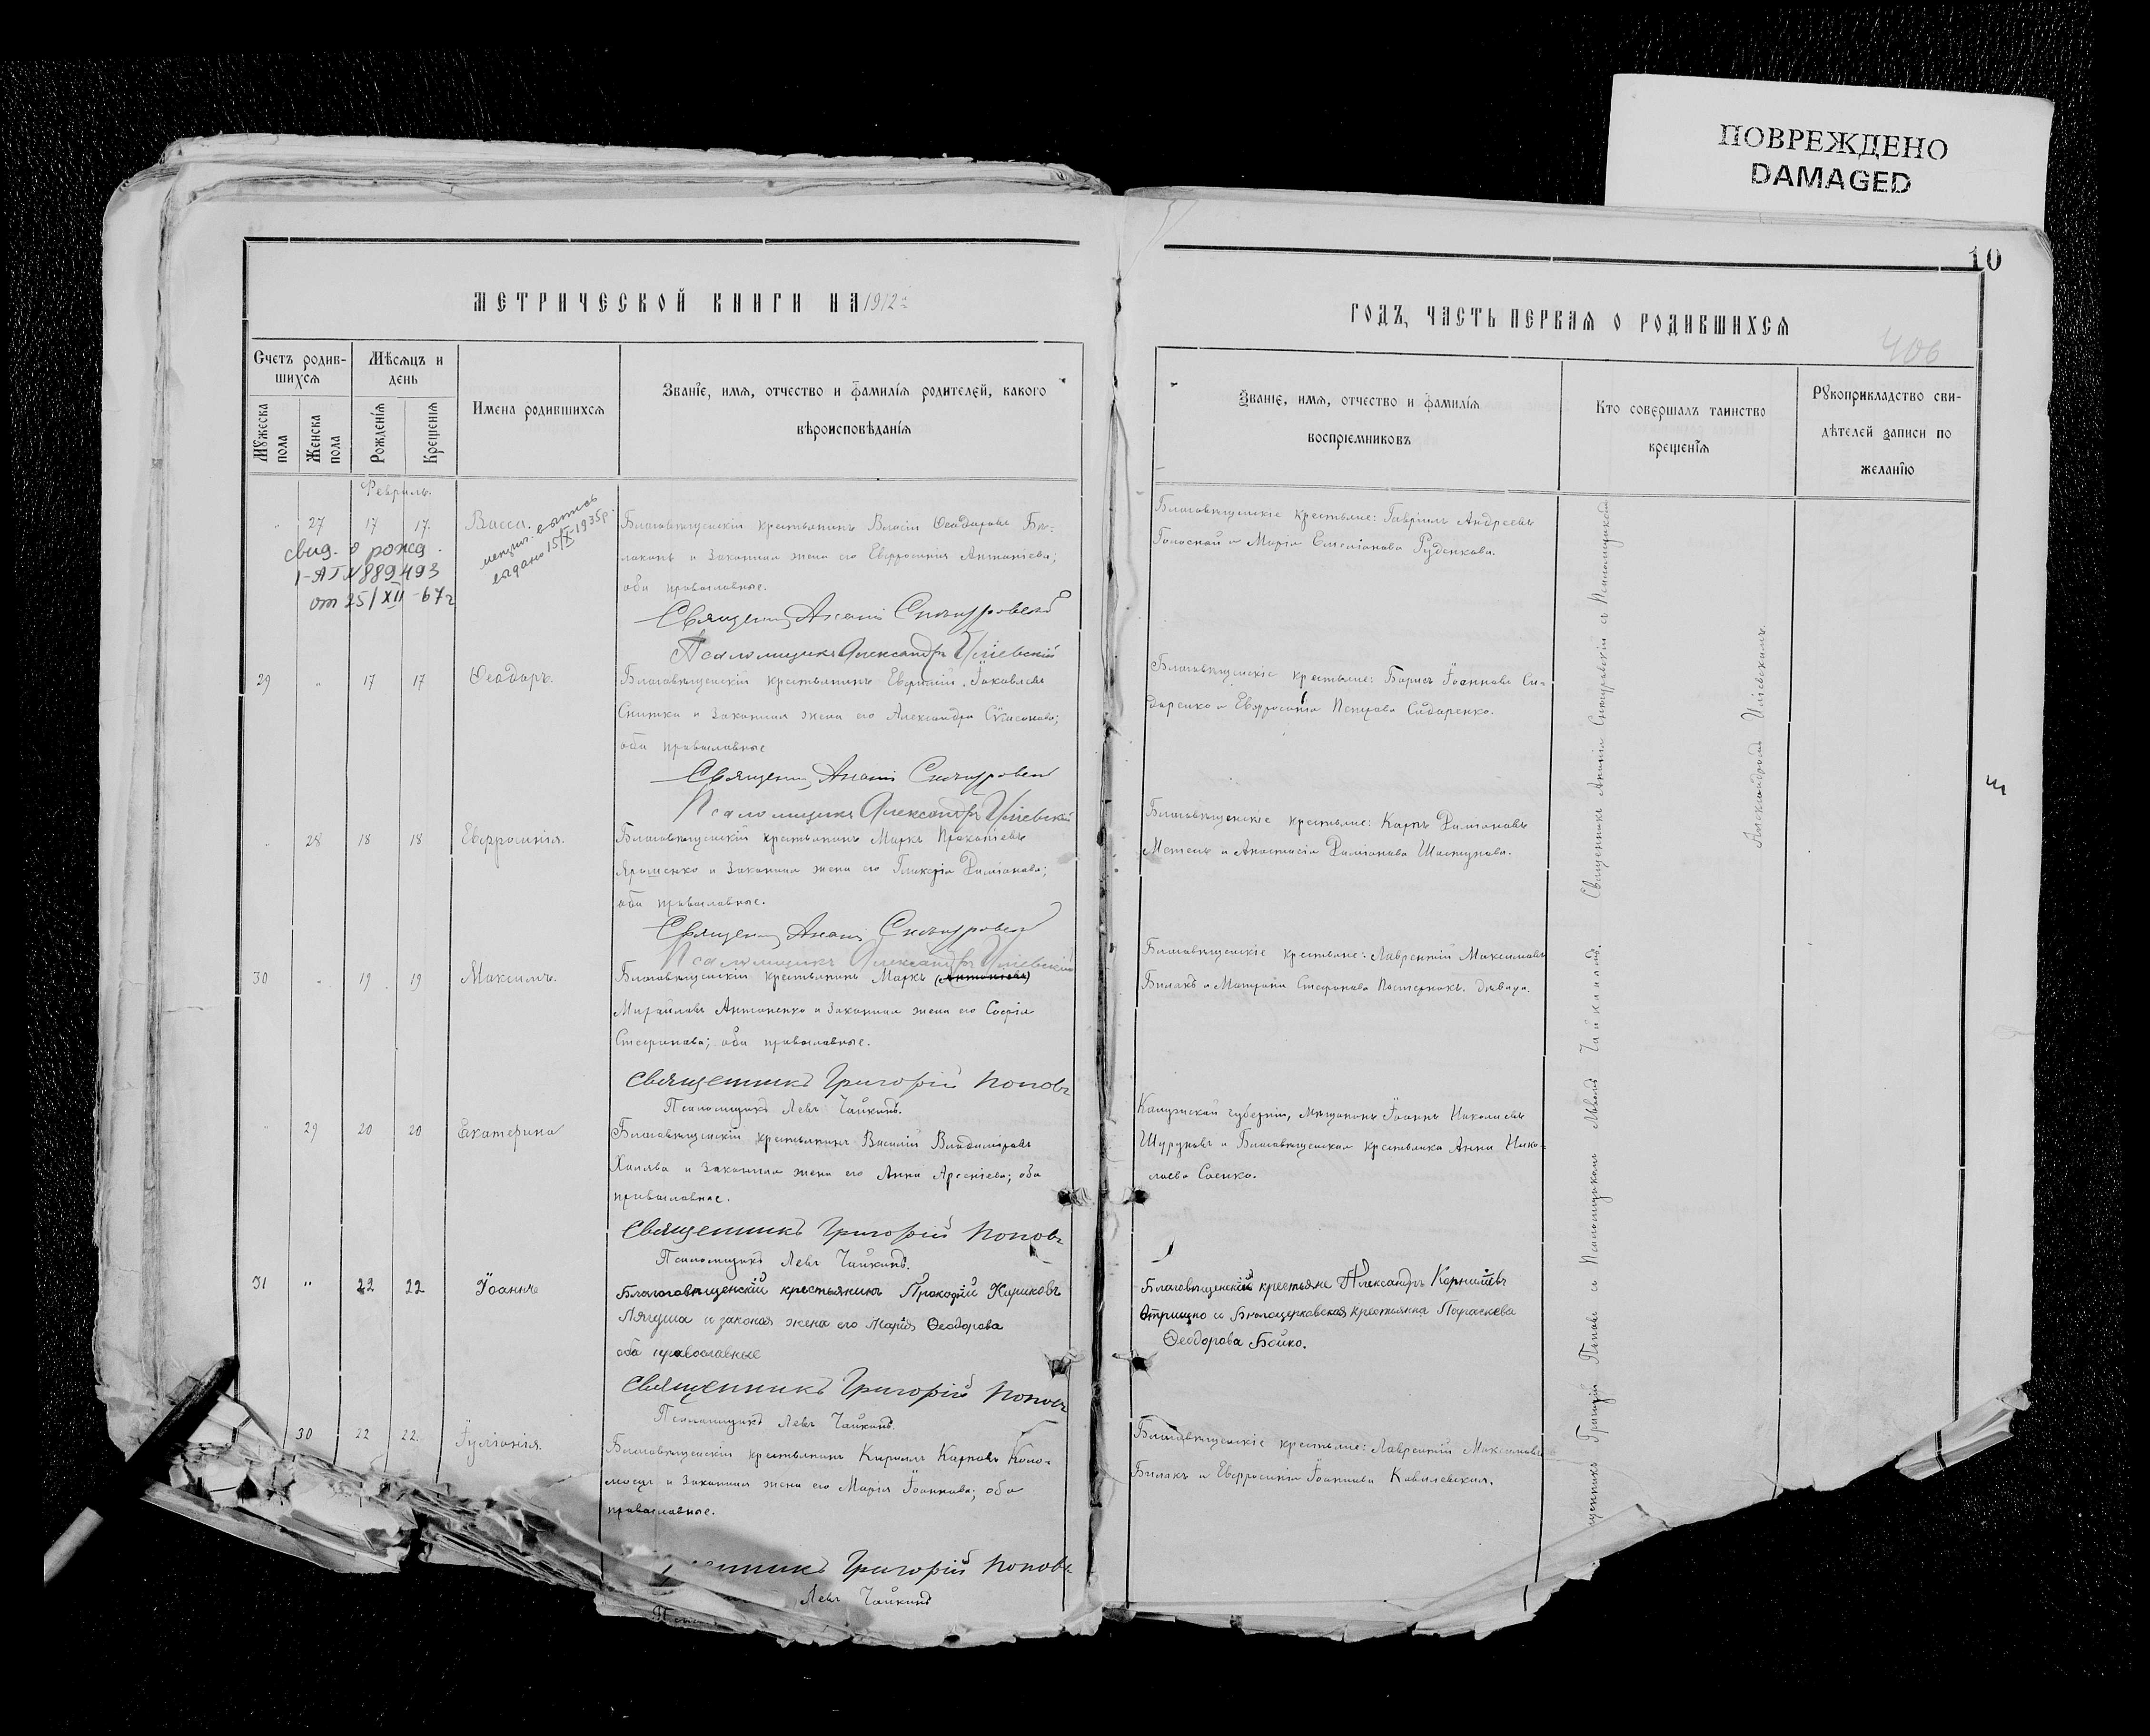 ПОВРЕЖДЕНО
DAMAGED
10
МЕТРИЧЕСКОЙ КНИГИ НА 1912 г.
ГОДЪ, ЧАСТЬ ПЕРВАЯ О РОДИВШИХСЯ
406
Счетъ родив-
шихся
Мѣсяцъ и
день
Мужеска
пола
Женска
пола
Рожденія
Крещенія
Имена родившихся
Званіе, имя, отчество и фамилія родителей, какого
вѣроисповѣданія
Званіе, имя, отчество и фамилія
воспріемниковъ
Кто совершалъ таинство
крещенія
Рукоприкладство сви-
дѣтелей записи по
желанію
Февраль.
" 27 17 17. Васса.
свид. о рожд.
1-АГ N 889493
от 25/XII-67г
выдано 15/IX 1935р.
Благовѣщенскій крестьянинъ Власій Ѳеодоровъ
и законная жена его Евфросинія Антоніева;
оба православные.
Священ. Ананій Снѣгуровскій
Псаломщикъ Александръ Иліевскій
Благовѣщенскіе крестьяне: Гавріилъ Андреевъ
Голоской и Марія Емеліанова Руденкова.
29 " 17 17 Ѳеодоръ.
Благовѣщенскій крестьянинъ Евфимій Іаковлевъ
Снитко и законная жена его Александра Сѵмеонова;
оба православные
Священ. Ананій Снѣгуровскій
Псаломщикъ Александръ Иліевскій
Благовѣщенскіе крестьяне: Борисъ Іоанновъ Си-
даренко и Евфросинія Петрова Сидаренко.
" 28 18 18 Евфросинія.
Благовѣщенскій крестьянинъ Маркъ Прокопіевъ
Ярошенко и законная жена его Гликерія Даміанова;
оба православные.
Священ. Ананій Снѣгуровскій
Псаломщикъ Александръ Иліевскій
Благовѣщенскіе крестьяне: Карпъ Даміановъ
Метель и Анастасія Даміанова Шастунова.
30 " 19 19 Максимъ.
Благовѣщенскій крестьянинъ Маркъ (Антоніевъ)
Михаиловъ Антоненко и законная жена его Софія
Стефанова; оба православные.
Священникъ Григорій Поповъ
Псаломщикъ Левъ Чайкинъ.
Благовѣщенскіе крестьяне: Лаврентій Максимовъ
Билакъ и Матрона Стефанова Пастернакъ. дѣвица.
" 29 20 20 Екатерина
Благовѣщенскій крестьянинъ Василій Владиміровъ
Халява и законная жена его Анна Арсеніева; оба
православные.
Священникъ Григорій Поповъ
Псаломщикъ Левъ Чайкинъ.
Калужской губерніи, мѣщанинъ Іоаннъ Николаевъ
Шурупов и Благовѣщенская крестьянка Анна Нико-
лаева Саенко.
31 " 22 22 Іоаннъ
Благовѣщенскій крестьянинъ Прокофій Кириковъ
Лягуша и законая жена его Марія Ѳеодорова
оба православные
Священникъ Григорій Поповъ
Псаломщикъ Левъ Чайкинъ.
Благовѣщенскій крестьяне Александръ Корниліевъ
и Бѣлоцерковская крестьянка Параскева
Ѳеодорова Бойко.
30 22 22. Іуліанія.
Благовѣщенскій крестьянинъ Кириллъ Карповъ Коло-
моецъ и законная жена его Марія Іоаннова; оба
православные.
Григорій Поповъ
Левъ Чайкинъ
Благовѣщенскіе крестьяне: Лаврентій Максимовъ
Билакъ и Евфросинія Іоаннова Ковалевская.
Священникъ Ананій Снѣгуровскій съ Псаломщикомъ
Александромъ Иліевскимъ.
Григорій Поповъ съ Псаломщикомъ Львомъ Чайкинымъ.